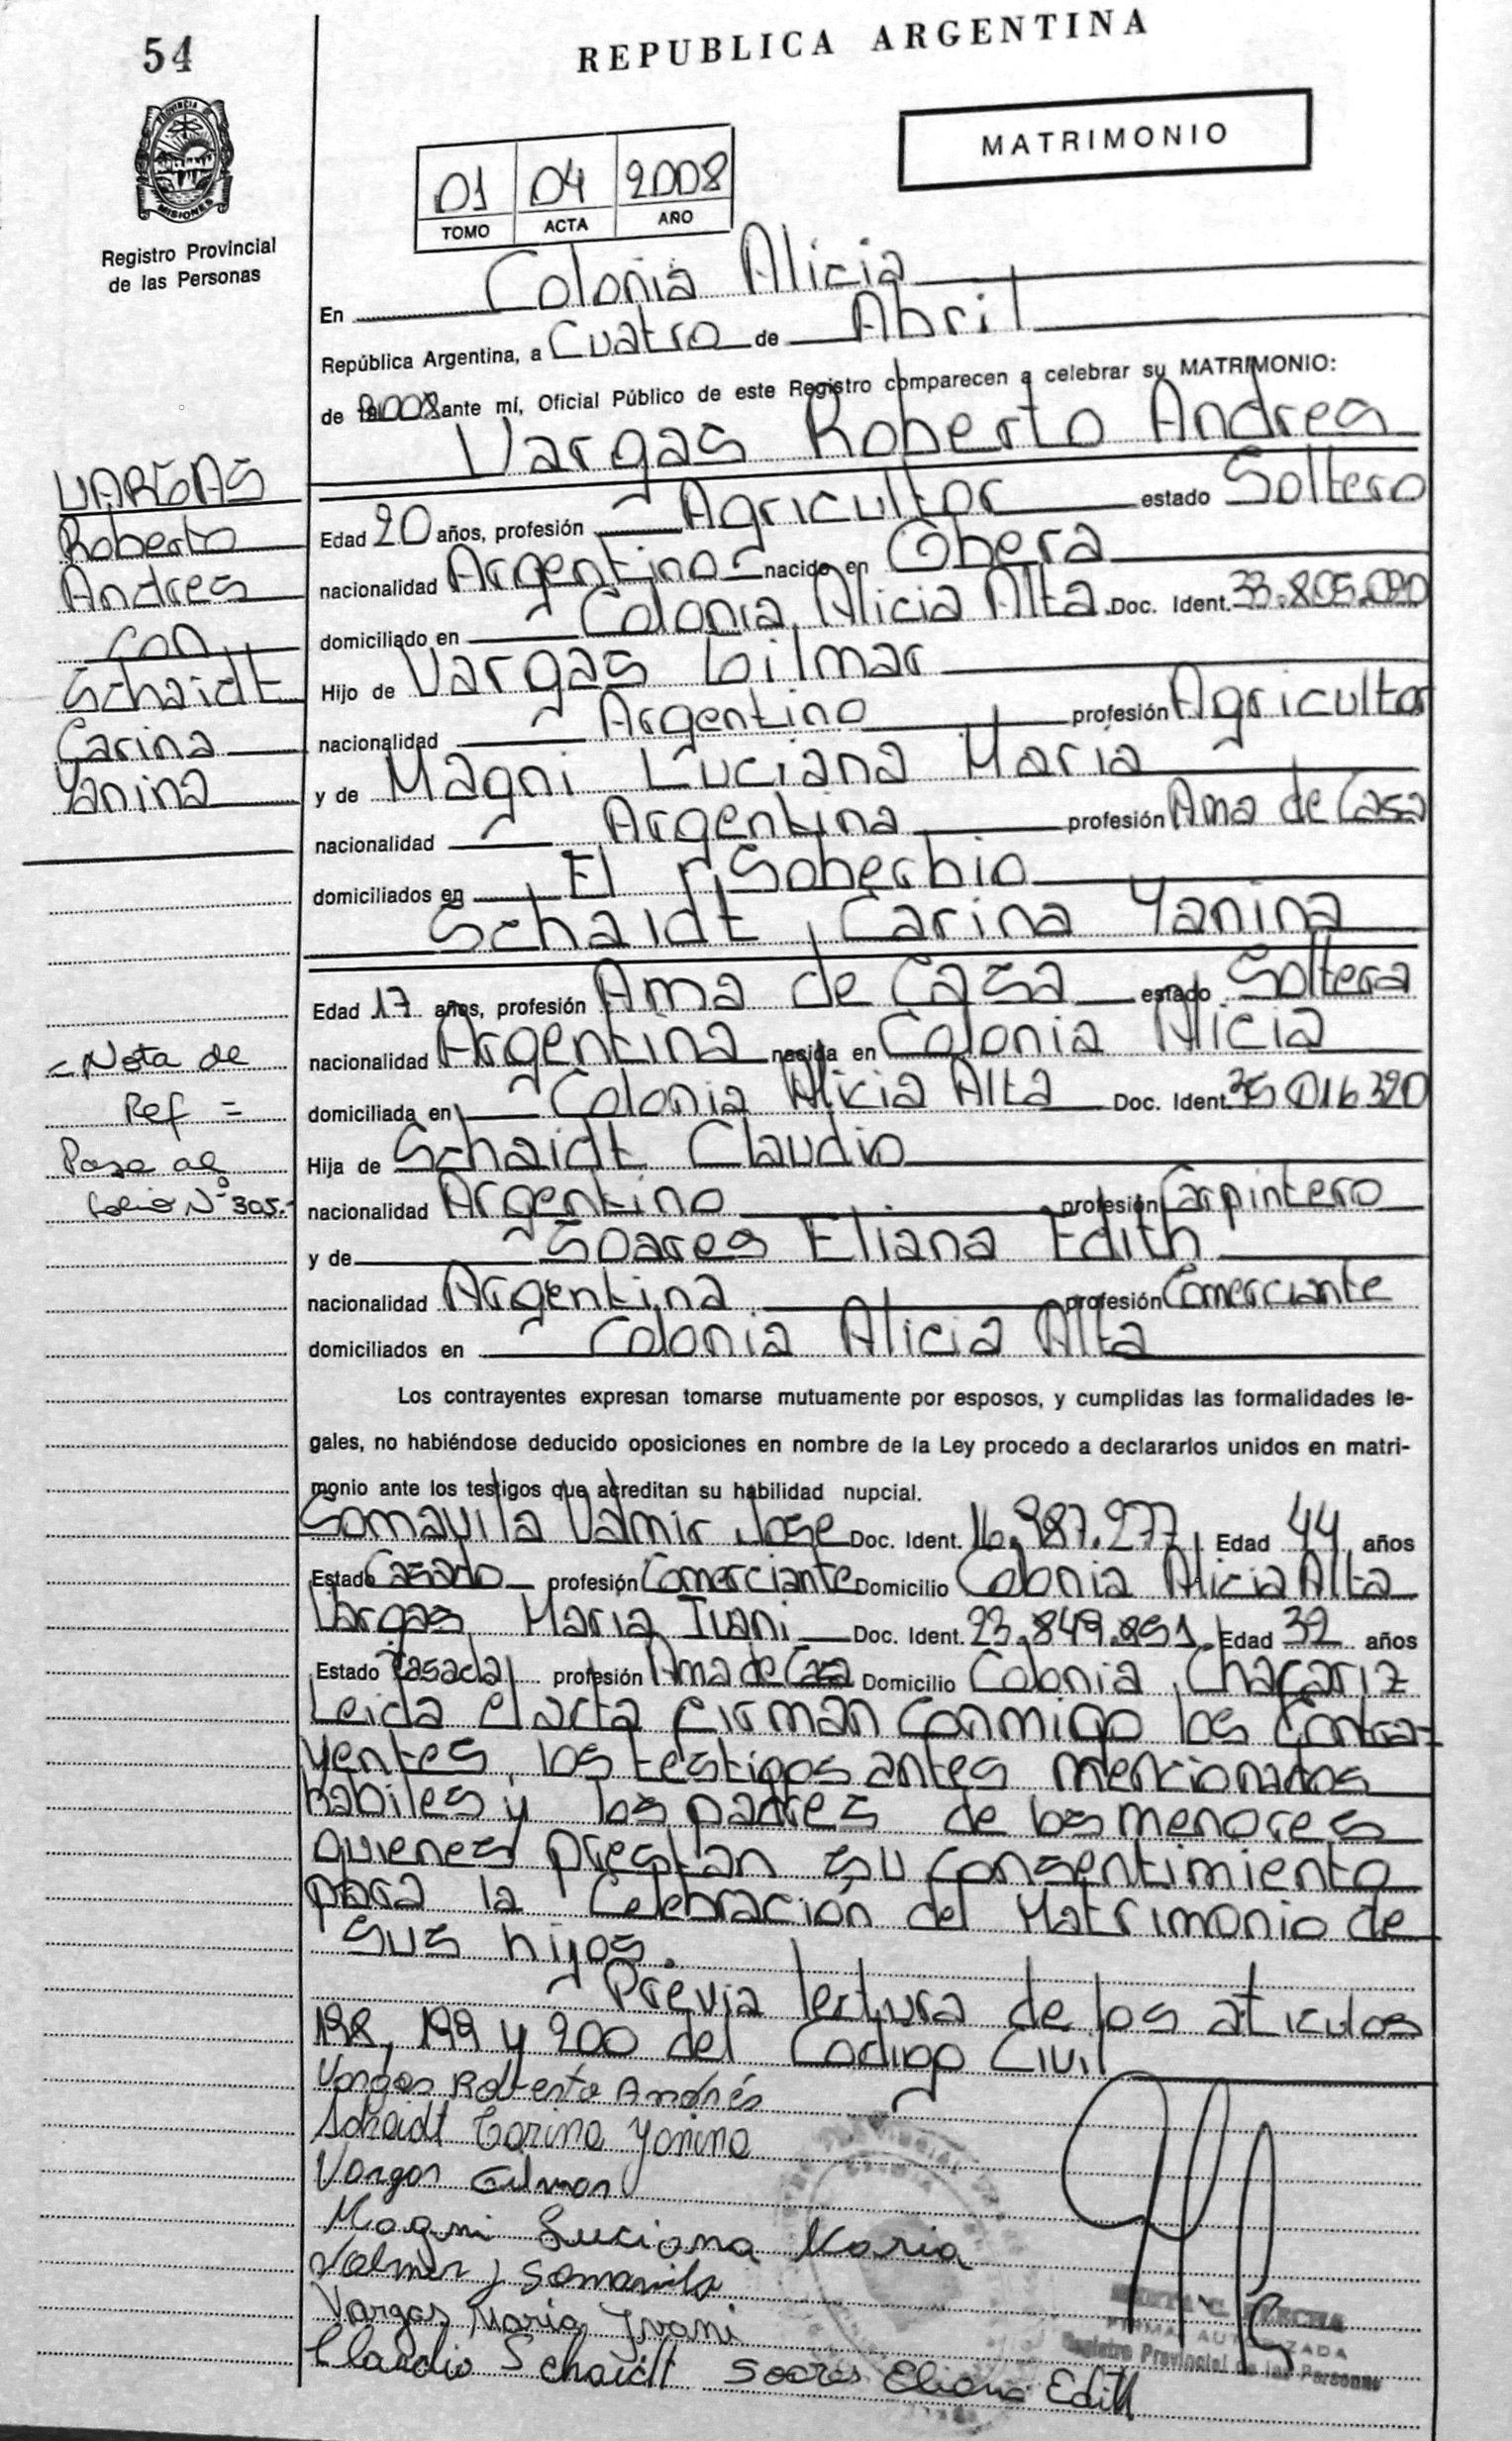 54
REPUBLICA ARGENTINA
MATRIMONIO
PROVINCIA DE
MISIONES
Registro Provincial
de las Personas
01 04 2008
TOMO ACTA AÑO
En Colonia Alicia
República Argentina, a Cuatro de Abril
de 2008 ante mí, Oficial Público de este Registro comparecen a celebrar su MATRIMONIO:
Vargas Roberto Andres
VARGAS
Roberto
Andres
con
Schaidt
Carina
Yanina
Edad 20 años, profesión Agricultor estado Soltero
nacionalidad Argentino nacido en Obera
domiciliado en Colonia Alicia Alta Doc. Ident. 33.805.090
Hijo de Vargas Gilmar
nacionalidad Argentino profesión Agricultor
y de Magni Luciana Maria
nacionalidad Argentina profesión Ama de Casa
domiciliados en El Soberbio
Schaidt, Carina Yanina
Edad 17 años, profesión Ama de Casa estado Soltera
nacionalidad Argentina nacida en Colonia Alicia
domiciliada en Colonia Alicia Alta Doc. Ident. 35 016 320
Hija de Schaidt Claudio
nacionalidad Argentino profesión Carpintero
y de Soares Eliana Edith
nacionalidad Argentina profesión Comerciante
domiciliados en Colonia Alicia Alta
= Nota de
Ref =
Pasa al
folio Nº 305.-
Los contrayentes expresan tomarse mutuamente por esposos, y cumplidas las formalidades le-
gales, no habiéndose deducido oposiciones en nombre de la Ley procedo a declararlos unidos en matri-
monio ante los testigos que acreditan su habilidad nupcial.
Somavila Valmir Jose Doc. Ident. 16.387.277 Edad 44 años
Estado Casado profesión Comerciante Domicilio Colonia Alicia Alta
Vargas Maria Ivani Doc. Ident. 23.849.851. Edad 32 años
Estado Casada profesión Ama de Casa Domicilio Colonia Chafariz
Leida el acta firman conmigo los Contra-
yentes, los testigos antes mencionados
habiles y los padres de los menores
quienes prestan su consentimiento
para la Celebración del Matrimonio de
sus hijos.
Previa lectura de los atículos
198, 199 y 200 del Codigo Civil
Vargas Roberto Andrés
Schaidt Carina Yanina
Vargas Gilmar
Magni Luciana Maria
Valmir J Somavila
Vargas Maria Ivani
Claudio Schaidt Soares Eliana Edith
FIRMA AUTORIZADA
Registro Provincial de las Personas